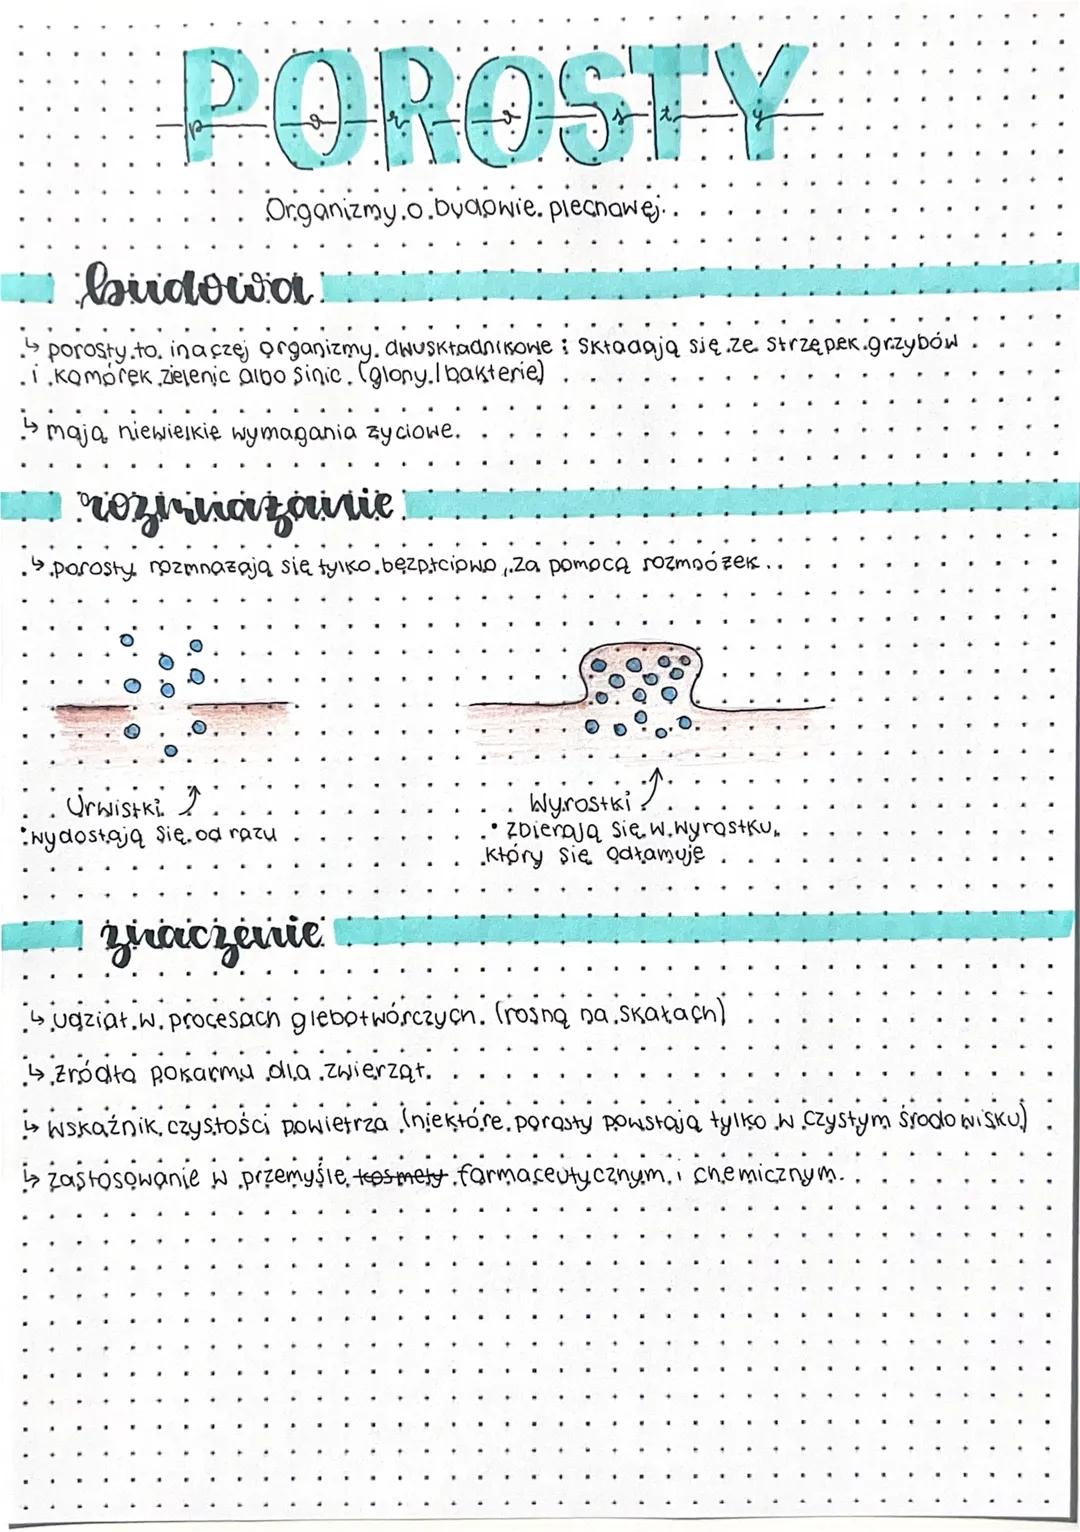 POROSTY
porosty
Organizmy o budowie plechowej.
budowa
↳ porosty to inaczej organizmy dwuskładnikowe: składają się ze strzępek grzybów
i komórek zielenic albo sinic. (glony / bakterie)
↳ mają niewielkie wymagania życiowe.
rozmnażanie
↳ porosty rozmnażają się tylko bezpłciowo, za pomocą rozmnóżek.
Urwistki
• wydostają się od razu
Wyrostki
• zbierają się w wyrostku,
który się odłamuje
znaczenie
↳ udział w procesach glebotwórczych. (rosną na skałach)
↳ źródło pokarmu dla zwierząt.
↳ wskaźnik czystości powietrza (niektóre porosty powstają tylko w czystym środowisku)
↳ zastosowanie w przemyśle kosmety farmaceutycznym i chemicznym.